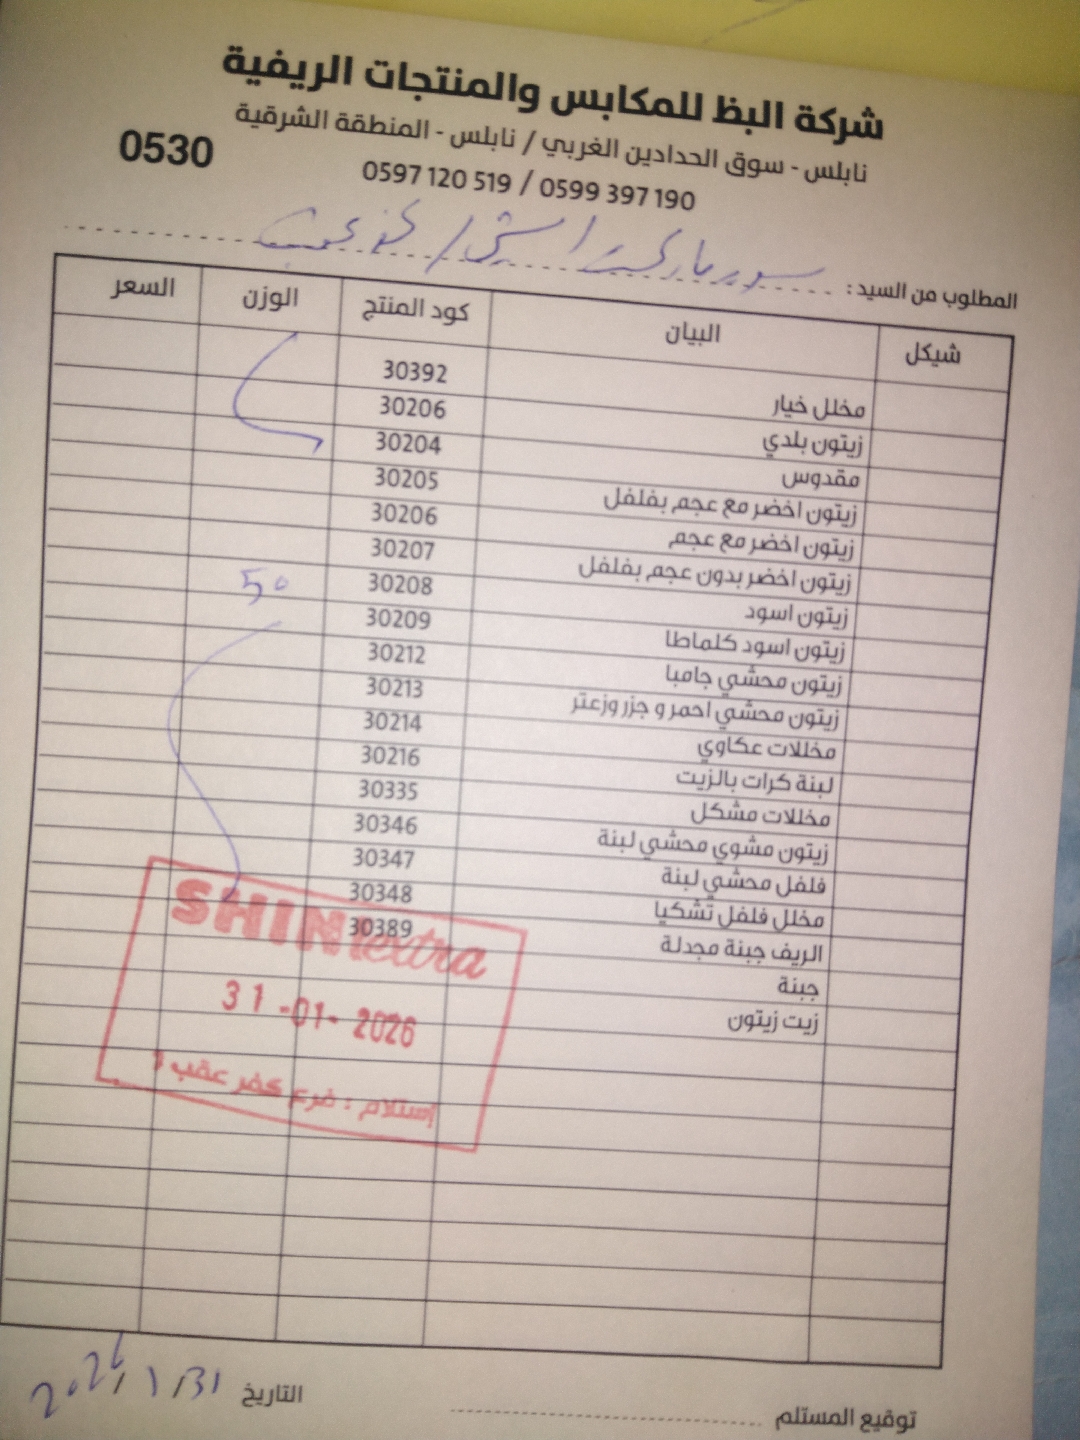 شركة البظ للمكابس والمنتجات الريفية
نابلس - سوق الحدادين الغربي / نابلس - المنطقة الشرقية
0530
0597 120 519 / 0599 397 190
المطلوب من السيد : سوبر ماركت
شيكل البيان كود المنتج الوزن السعر
30392
مخلل خيار 30206
زيتون بلدي 30204
مقدوس 30205
زيتون اخضر مع عجم بفلفل 30206
زيتون اخضر مع عجم 30207
زيتون اخضر بدون عجم بفلفل 30208 50
زيتون اسود 30209
زيتون اسود كلماطا 30212
زيتون محشي جامبا 30213
زيتون محشي احمر و جزر وزعتر 30214
مخللات عكاوي 30216
لبنة كرات بالزيت 30335
مخللات مشكل 30346
زيتون مشوي محشي لبنة 30347
فلفل محشي لبنة 30348
مخلل فلفل تشكيا 30389
الريف جبنة مجدلة
جبنة
زيت زيتون
SHINI extra
31-01-2026
إستلام : فرع كفر عقب
التاريخ 31/1/2026
توقيع المستلم